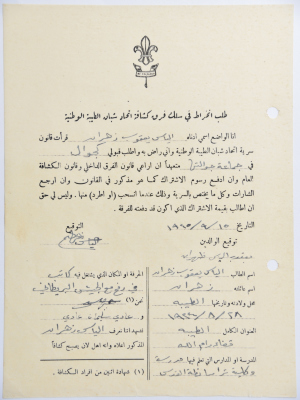 طلب انخراط في سلك فرق كشافة اتحاد شبان الطيبة الوطنية
انا الواضع اسمي ادناه الياس يعقوب زهران قرأت قانون
سرية اتحاد شبان الطيبة الوطنية واني راض به واطلب قبولي كجوال
في جماعة جوالتها متعهداً ان اراعي قانون الفرق الداخلي وقانون الكشافة
العام وان ادفع رسوم الاشتراك كما هو مذكور في القانون وان ارجع
الشارات وكل ما يختص بالسرية وذلك عندما انسحب (او اطرد) منها. وليس لي حق
ان اطالب بقيمة الاشتراك الذي اكون قد دفعته للفرقة.
التاريخ
التوقيع
توقيع الوالدين
اسم الطالب الياس يعقوب زهران
اسم العائلة زهران
محل ولادته وتاريخها الطيبه
٢٨ / ٨ /
العنوان الكامل الطيبه
قضاء رام الله
المدرسة او المدارس التي تعلم فيها مدرسة
الحرفة او المكان الذي يشتغل فيه كاتب
نحن (١)
و
نشهد اننا نعرف الياس زهران
المذكور اعلاه وانه اهل لان يصبح كشافاً
(١) شهادة اثنين من افراد الكشافة.